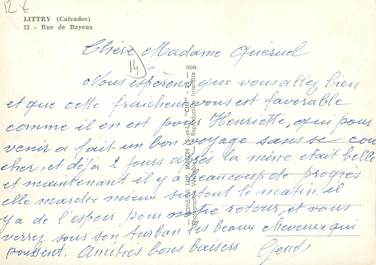 12 €
LITTRY (Calvados)
12 - Rue de Bayeux
14
Chère Madame Quéruel
Nous espérons que vous allez bien
et que cette fraicheur vous est favorable
comme il en est pour Henriette, qui pour
venir a fait un bon voyage sans se cou
cher et déjà 2 jours après la mine était belle
et maintenant il y a beaucoup de progrès
elle marche mieux surtout le matin. il
y a de l'espoir pour notre retour, et vous
verrez sous son turban les beaux cheveux qui
poussent. Amitiés bons baisers